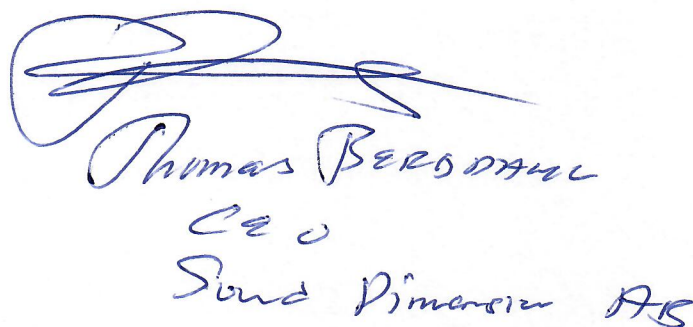 Thomas BERGDAHL
CEO
Sound Dimension AB